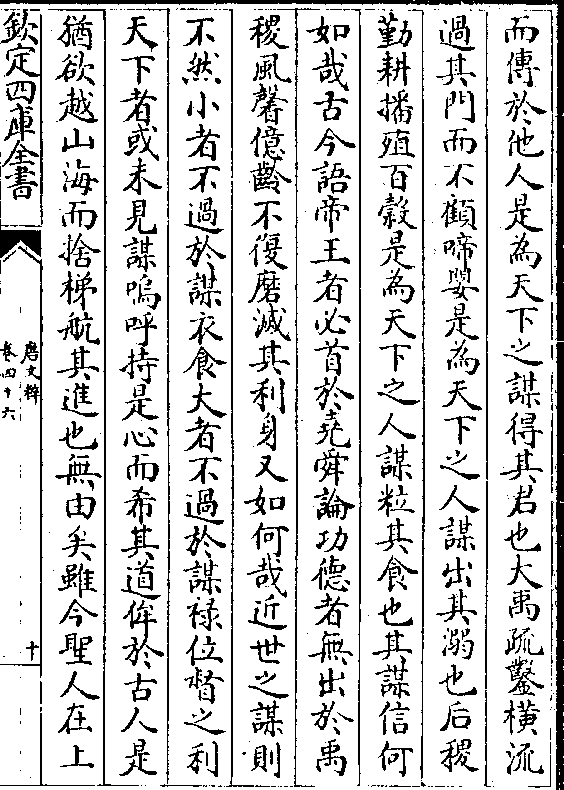 而傳於他人是為天下之謀得其君也大禹疏鑿橫流
過其門而不顧啼嬰是為天下之人謀出其溺也后稷
勤耕播殖百穀是為天下之人謀粒其食也其謀信何
如哉古今語帝王者必首於堯舜論功德者無出於禹
稷風馨億齡不復磨滅其利身又如何哉近世之謀則
不然小者不過於謀衣食大者不過於謀祿位督之利
天下者或未見謀嗚呼持是心而希其道侔於古人是
猶欲越山海而捨梯航其進也無由矣雖今聖人在上
欽定四庫全書
唐文粹
卷四十六
十